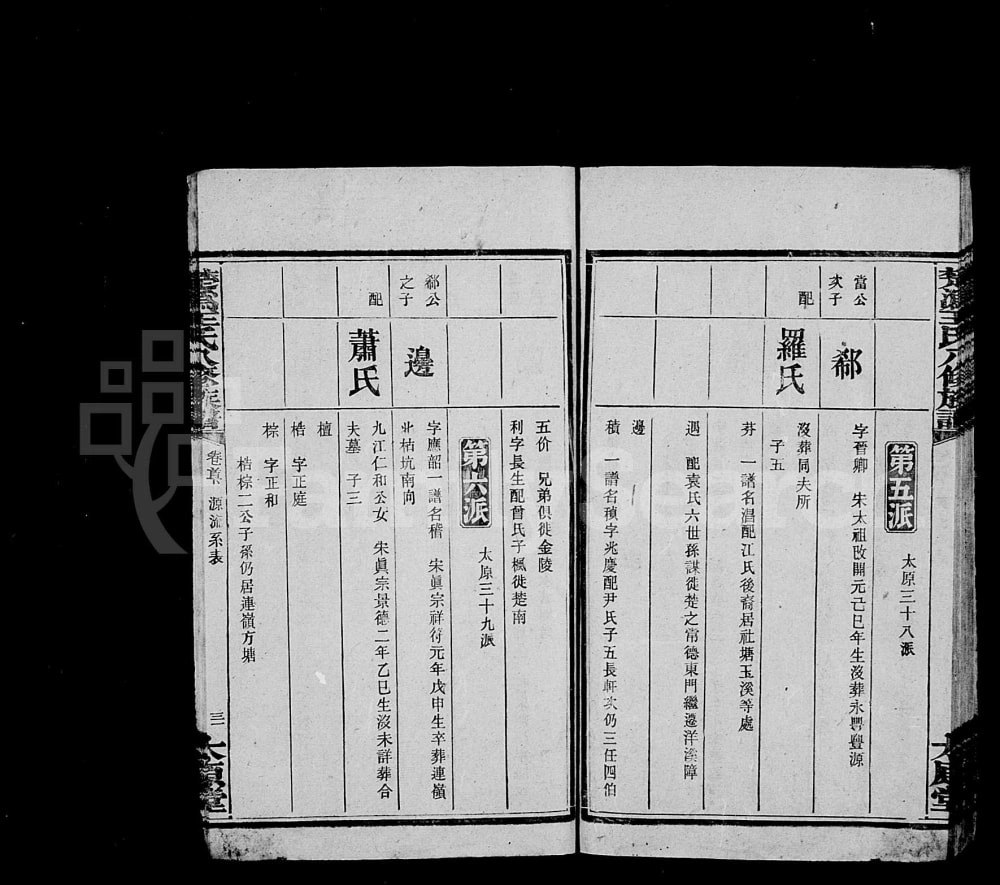 楚溈王氏八修族譜
太原堂
第五派
太原三十八派
當公
次子
郗
字晉卿　宋太祖改開元己巳年生沒葬永興豐源
配
羅氏
沒葬同夫所
子五
芬　一譜名淐配江氏後裔居社塘玉溪等處
遇　配袁氏六世孫謀徙楚之常德東門繼遷洋溪障
邊
積　一譜名稹字兆慶配尹氏子五長軒次仍三任四伯
五价　兄弟俱徙金陵
利字長生配曾氏子楓徙楚南
第六派
太原三十九派
郗公
之子
邊
字應韶一譜名稽　宋眞宗祥符元年戊申生卒葬連嶺
北枯坑南向
配
蕭氏
九江仁和公女　宋眞宗景德二年乙巳生沒未詳葬合
夫墓　子三
檀
梏　字正庭
棕　字正和
梏棕二公子孫仍居連嶺方塘
楚溈王氏八修族譜
卷首　源流系表
三
太原堂